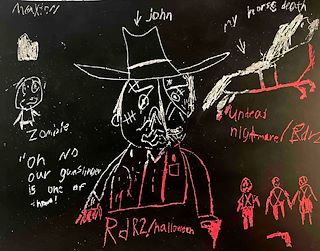 john
my horse death
Zombie
"oh no
our gunslinger
is one of
Undead
nightmare/RdR2
RdR2/halloween